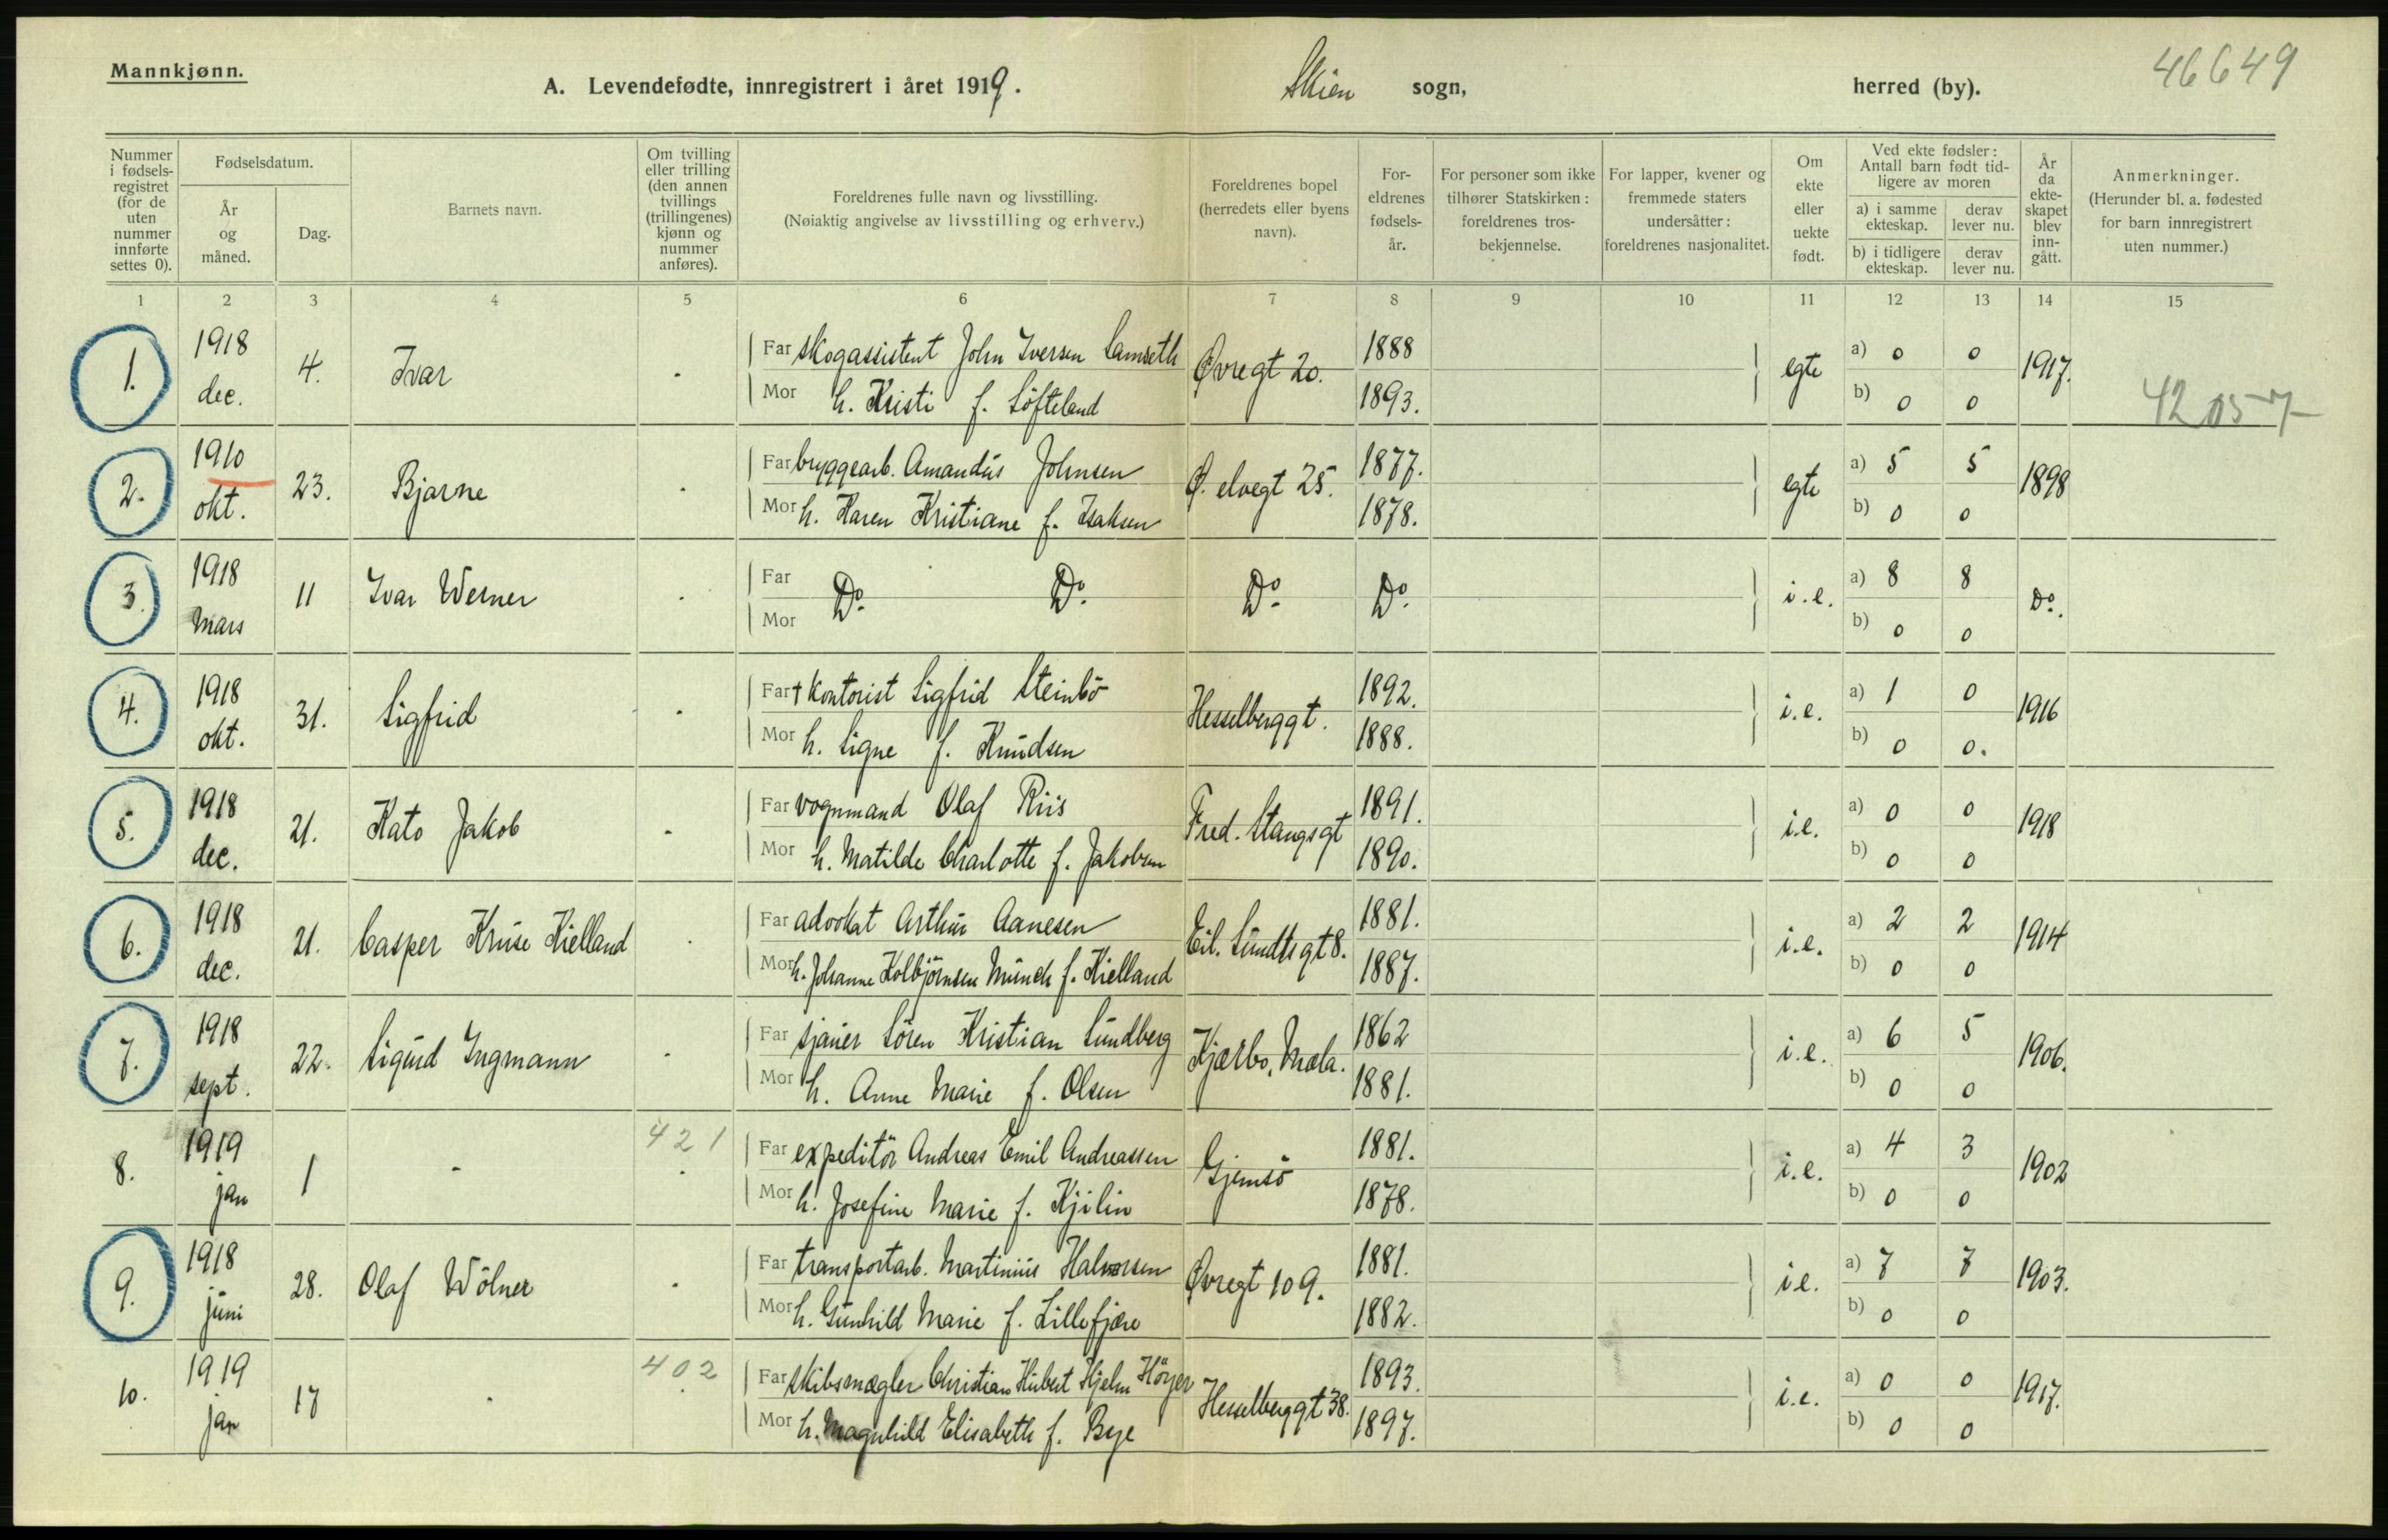 Mannkjønn.
A. Levendefødte, innregistrert i året 1919. Skien sogn, herred (by). 46649
Nummer i fødsels-registret (for de uten nummer innførte settes 0).
Fødselsdatum.
År og måned.
Dag.
Barnets navn.
Om tvilling eller trilling (den annen tvillings (trillingenes) kjønn og nummer anføres).
Foreldrenes fulle navn og livsstilling.
(Nøiaktig angivelse av livsstilling og erhverv.)
Foreldrenes bopel (herredets eller byens navn).
For-eldrenes fødsels-år.
For personer som ikke tilhører Statskirken: foreldrenes tros-bekjennelse.
For lapper, kvener og fremmede staters undersåtter: foreldrenes nasjonalitet.
Om ekte eller uekte født.
Ved ekte fødsler: Antall barn født tid-ligere av moren
a) i samme ekteskap.
derav lever nu.
b) i tidligere ekteskap.
derav lever nu.
År da ekte-skapet blev inn-gått.
Anmerkninger.
(Herunder bl. a. fødested for barn innregistrert uten nummer.)
1 2 3 4 5 6 7 8 9 10 11 12 13 14 15
1. 1918 dec. 4. Ivar -
Far skogassistent John Iversen Lamseth Øvregt 20. 1888 egte a) 0 0 1917.
Mor h. Kristi f. Löfteland 1893. b) 0 0 42057
2. 1910 okt. 23. Bjarne -
Far bryggearb. Amandus Johnsen Ø. elvegt 25. 1877. egte a) 5 5 1898
Mor h. Karen Kristiane f. Isaksen 1878. b) 0 0
3. 1918 Mars 11 Ivar Werner -
Far Do. Do. Do. Do. i.e. a) 8 8 Do.
Mor b) 0 0
4. 1918 okt. 31. Sigfrid -
Far † kontorist Sigfrid Steinbö Hesselberggt. 1892. i.e. a) 1 0 1916
Mor h. Signe f. Knudsen 1888. b) 0 0.
5. 1918 dec. 21. Kato Jakob -
Far vognmand Olaf Riis Fred. Stangsgt 1891. i.e. a) 0 0 1918
Mor h. Matilde Charlotte f. Jakobsen 1890. b) 0 0
6. 1918 dec. 21. Casper Kruse Kielland -
Far advokat Arthur Aanesen Eil. Sundtsgt 8. 1881. i.e. a) 2 2 1914
Mor h. Johanne Kolbjörnsen Munch f. Kielland 1887. b) 0 0
7. 1918 sept. 22. Sigurd Ingmann -
Far sjauer Sören Kristian Sundberg Kjærbo, Mæla. 1862 i.e. a) 6 5 1906.
Mor h. Anne Marie f. Olsen 1881. b) 0 0
8. 1919 jan 1 - 421 -
Far expeditör Andreas Emil Andreassen Gjemsö 1881. i.e. a) 4 3 1902
Mor h. Josefine Marie f. Kjilin 1878. b) 0 0
9. 1918 juni 28. Olaf Wölner -
Far transportarb. Martinius Halvorsen Øvregt 109. 1881. i.e. a) 7 7 1903.
Mor h. Gunhild Marie f. Lillefjære 1882. b) 0 0
10. 1919 jan 17 - 402 -
Far skibsmægler Christian Hubert Hjelm Höyer Hesselberggt 38. 1893. i.e. a) 0 0 1917.
Mor h. Magnhild Elisabeth f. Bye 1897. b) 0 0